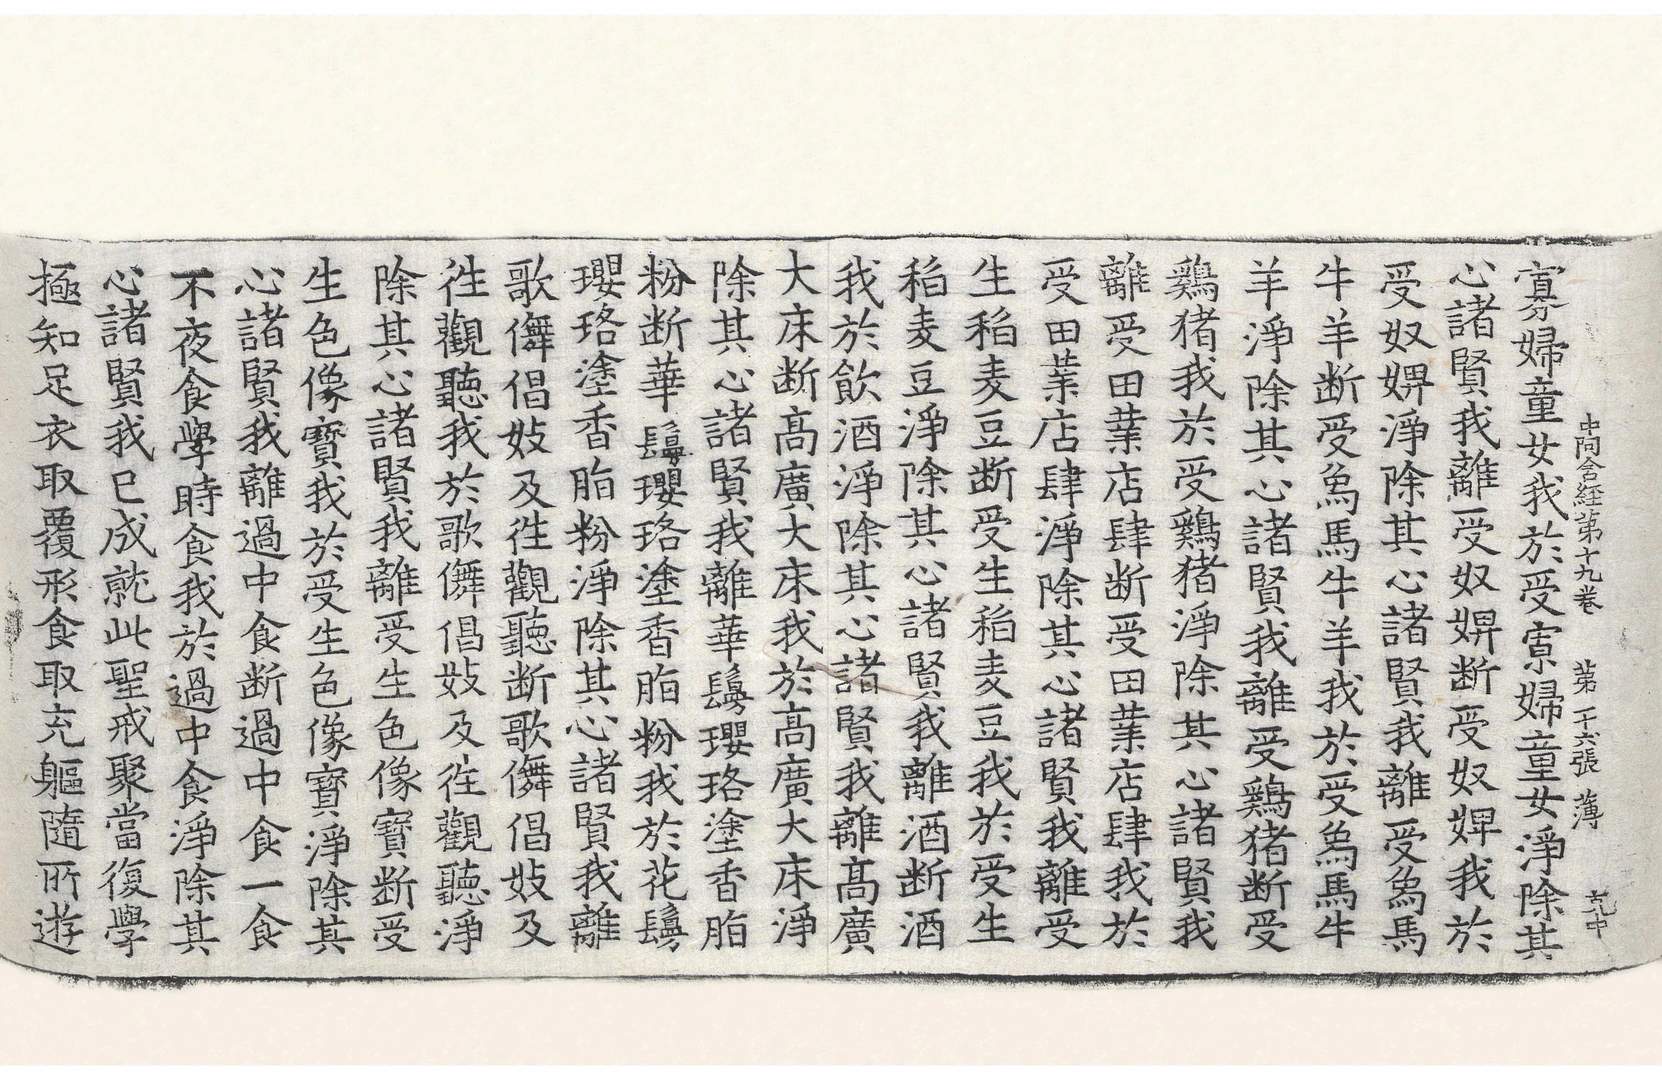 中阿含経第十九卷 第二十六張 薄
寡婦童女我於受寡婦童女淨除其
心諸賢我離受奴婢断受奴婢我於
受奴婢淨除其心諸賢我離受象馬
牛羊断受象馬牛羊我於受象馬牛
羊淨除其心諸賢我離受鷄猪断受
鷄猪我於受鷄猪淨除其心諸賢我
離受田業店肆断受田業店肆我於
受田業店肆淨除其心諸賢我離受
生稻麦豆断受生稻麦豆我於受生
稻麦豆淨除其心諸賢我離酒断酒
我於飲酒淨除其心諸賢我離髙廣
大床断髙廣大床我於髙廣大床淨
除其心諸賢我離華鬘瓔珞塗香脂
粉断華鬘瓔珞塗香脂粉我於花鬘
瓔珞塗香脂粉淨除其心諸賢我離
歌儛倡妓及往觀聽断歌儛倡妓及
往觀聽我於歌儛倡妓及往觀聽淨
除其心諸賢我離受生色像寶断受
生色像寶我於受生色像寶淨除其
心諸賢我離過中食断過中食一食
不夜食學時食我於過中食淨除其
心諸賢我已成就此聖戒聚當復學
極知足衣取覆形食取充軀隨所遊